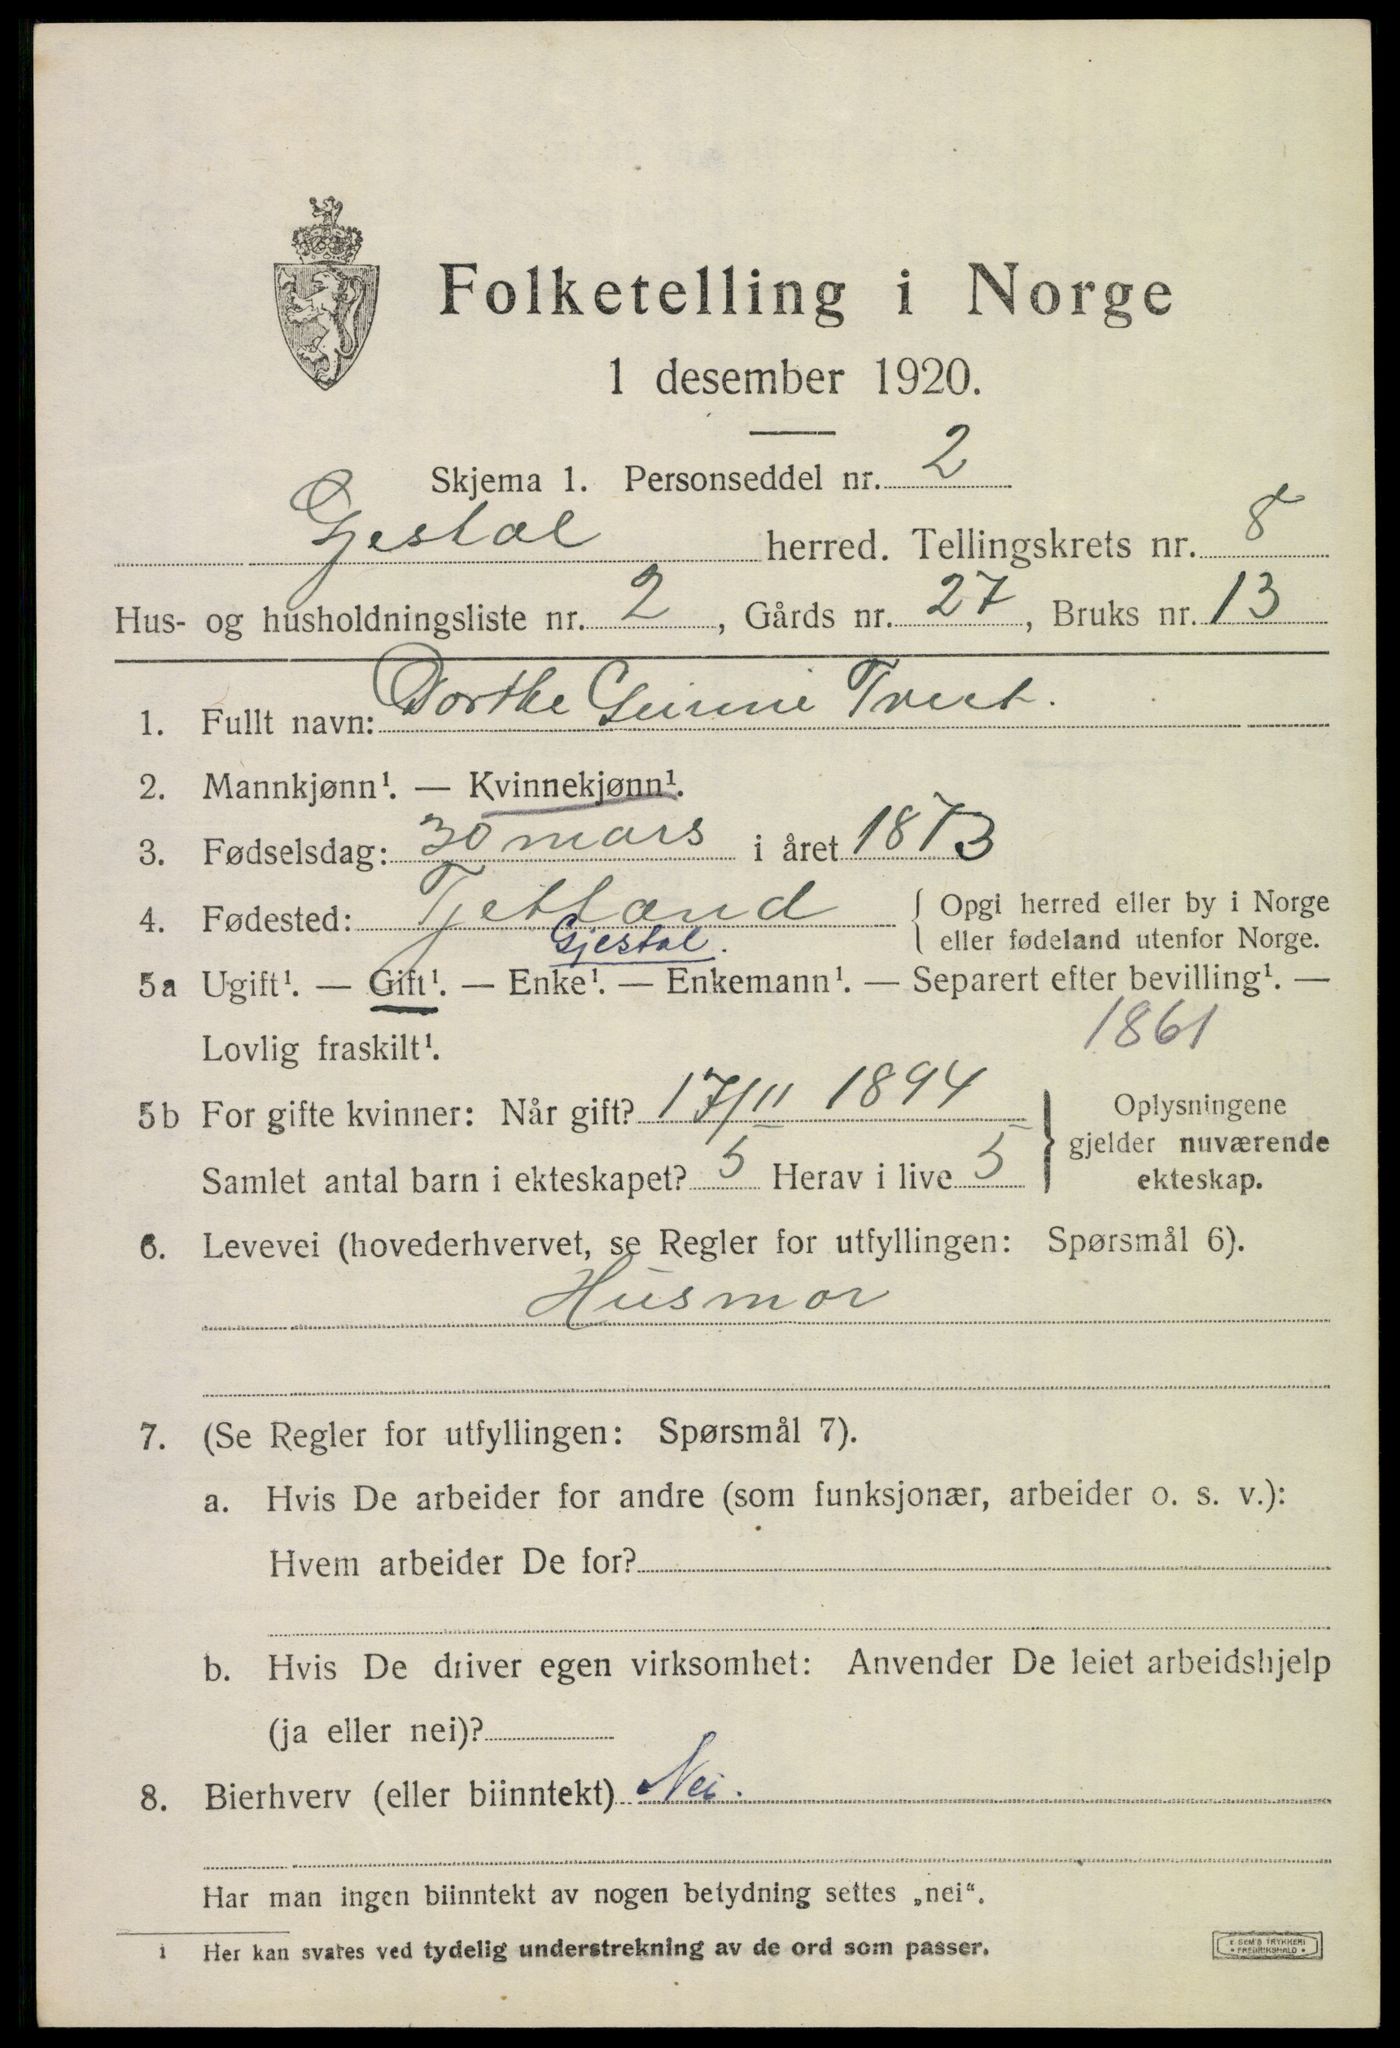 Folketelling i Norge
1 desember 1920.
Skjema 1. Personseddel nr. 2
Gjestal herred. Tellingskrets nr. 8
Hus- og husholdningsliste nr. 2, Gårds nr. 27, Bruks nr. 13
1. Fullt navn: Dorthe Gunnie Tveit.
2. Mannkjønn¹. — Kvinnekjønn¹.
3. Fødselsdag: 30 mars i året 1873
4. Fødested: Tjetland { Opgi herred eller by i Norge
Gjestal. eller fødeland utenfor Norge.
5a Ugift¹. — Gift¹. — Enke¹. — Enkemann¹. — Separert efter bevilling¹. —
Lovlig fraskilt¹. 1861
5b For gifte kvinner: Når gift? 17/11 1894 } Oplysningene
gjelder nuværende
Samlet antal barn i ekteskapet? 5 Herav i live 5 ekteskap.
6. Levevei (hovederhvervet, se Regler for utfyllingen: Spørsmål 6).
Husmor
7. (Se Regler for utfyllingen: Spørsmål 7).
a. Hvis De arbeider for andre (som funksjonær, arbeider o. s. v.):
Hvem arbeider De for?
b. Hvis De driver egen virksomhet: Anvender De leiet arbeidshjelp
(ja eller nei)?
8. Bierhverv (eller biinntekt) Nei.
Har man ingen biinntekt av nogen betydning settes „nei“.
1 Her kan svares ved tydelig understrekning av de ord som passer.
E SEM'S TRYKKERI
• FREDRIKSHALD •